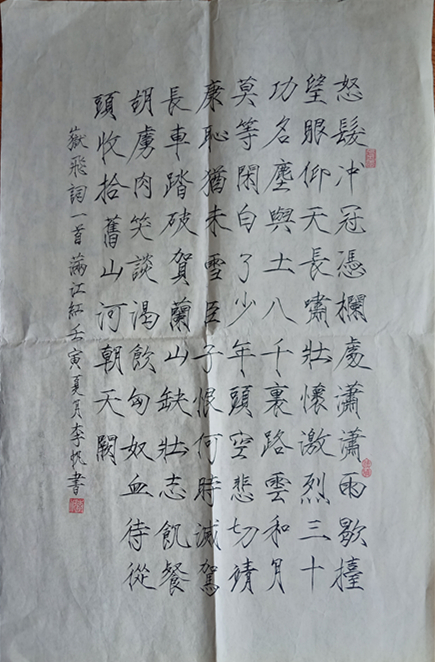 怒髮冲冠憑欄處瀟瀟雨歇擡
望眼仰天長嘯壯懷激烈三十
功名塵與土八千裏路雲和月
莫等閑白了少年頭空悲切靖
康恥猶未雪臣子恨何時滅駕
長車踏破賀蘭山缺壯志飢餐
胡虜肉笑談渴飲匈奴血待從
頭收拾舊山河朝天闕
嶽飛詞一首滿江紅壬寅夏月李書